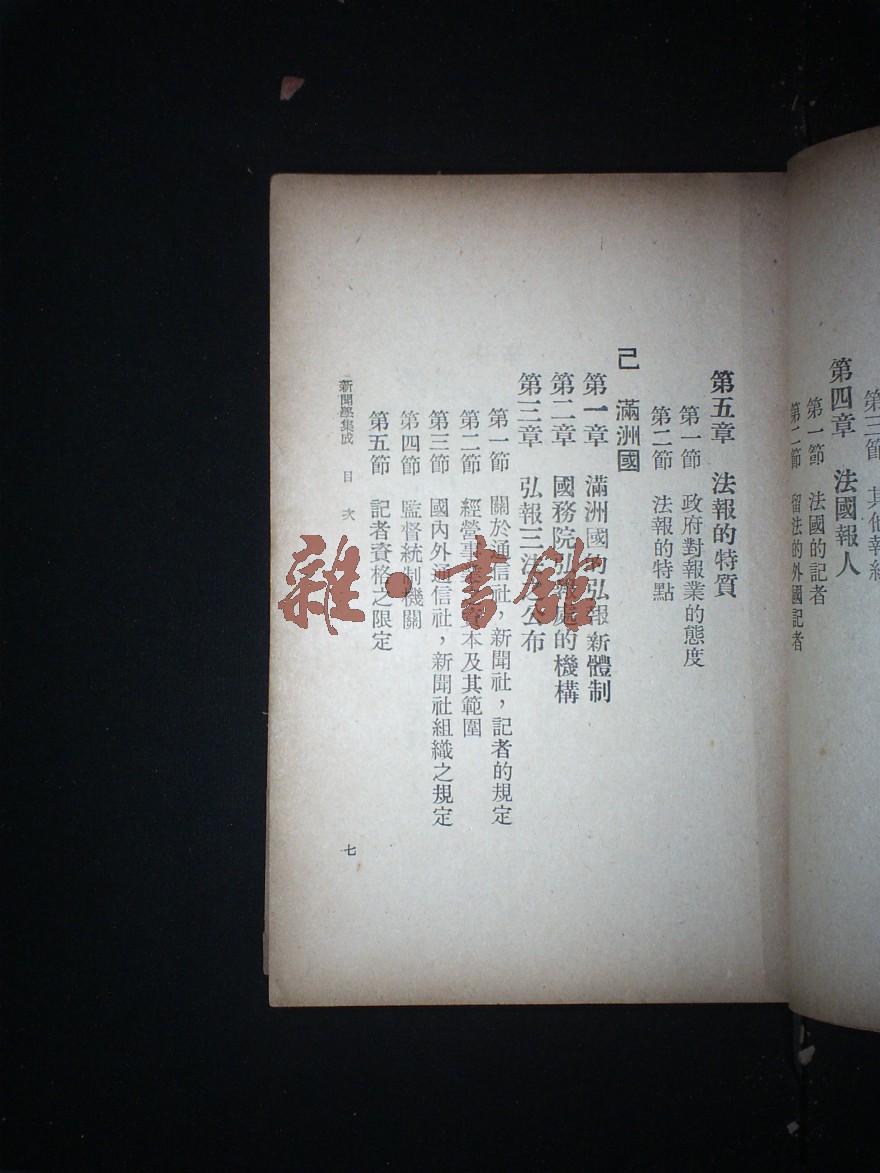 第三節　其他報紙
第四章　法國報人
第一節　法國的記者
第二節　留法的外國記者
第五章　法報的特質
第一節　政府對報業的態度
第二節　法報的特點
己　滿洲國
第一章　滿洲國的弘報新體制
第二章　國務院弘報處的機構
第三章　弘報三法之公布
第一節　關於通信社，新聞社，記者的規定
第二節　經營事業 本及其範圍
第三節　國內外通信社，新聞社組織之規定
第四節　監督統制機關
第五節　記者資格之限定
新聞學集成　目次
七
雜·書館